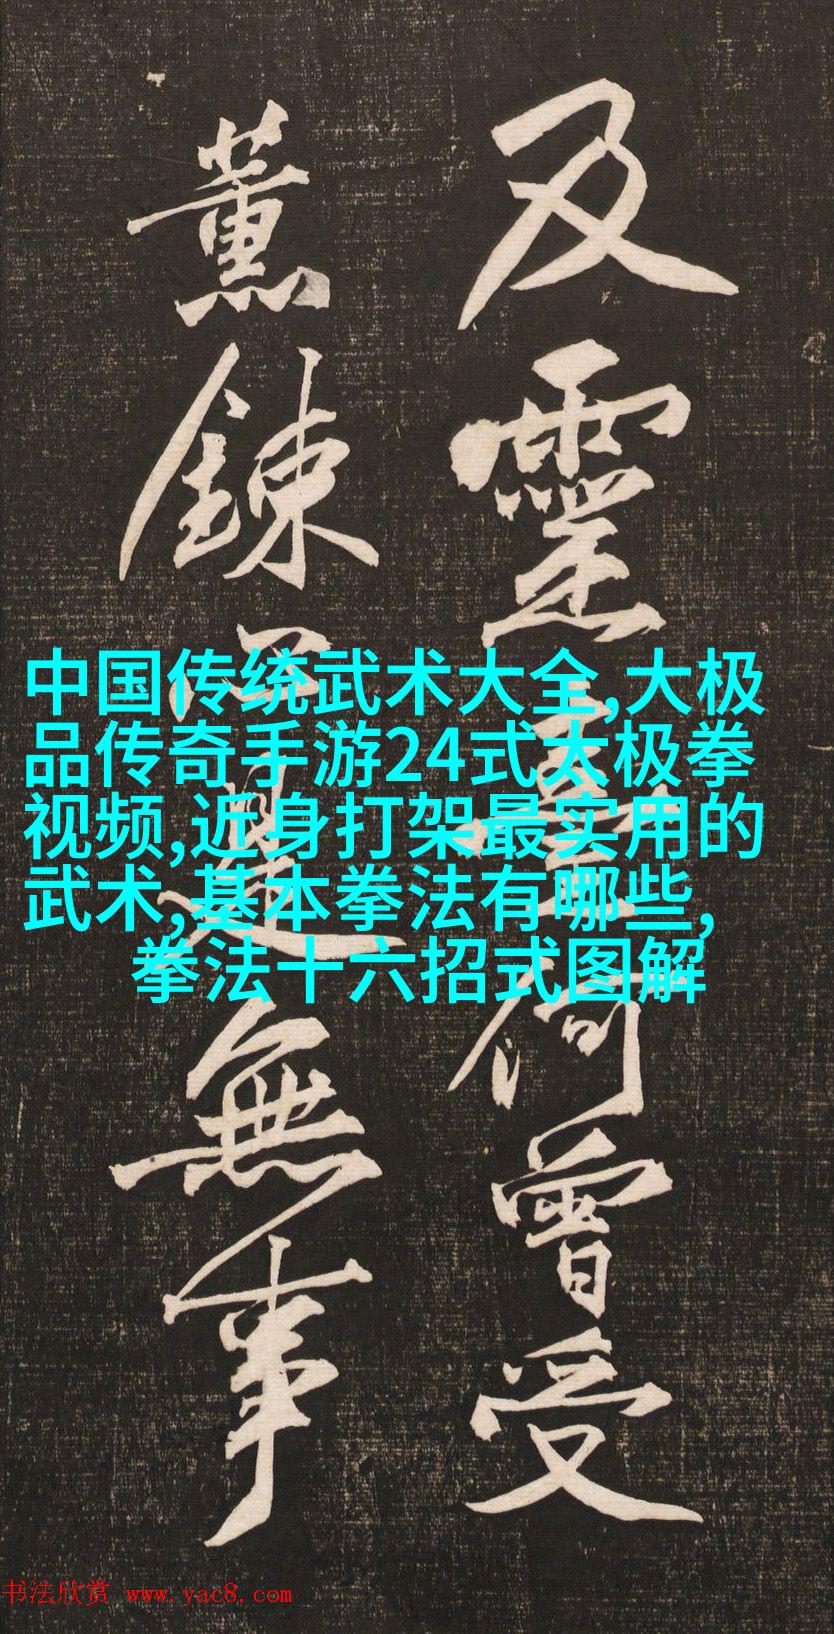 及靈
何曾受
薰鍊
是無事
中国传统武术大全,大极
品传奇手游24式太极拳
视频,近身打架最实用的
武术,基本拳法有哪些,
拳法十六招式图解
书法欣赏 www.yac8.com